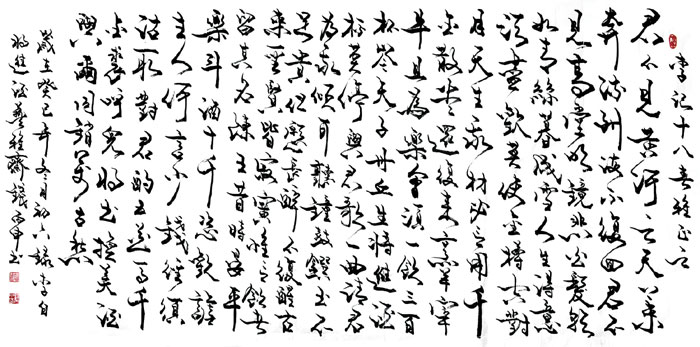 君不見黄河之天上来
奔流到海不復回君不
見高堂明鏡悲白髮朝
如青絲暮成雪人生得意
須盡歡莫使金樽空對
月天生我材必有用千
金散盡還復来烹羊宰
牛且為樂會須一飲三百
杯岑夫子丹丘生將進酒
杯莫停與君歌一曲請君
為我傾耳聽鐘鼓饌玉不
足貴但願長醉不復醒古
来聖賢皆寂寞惟有飲者
留其名陳王昔時宴平
樂斗酒十千恣歡謔
主人何言少錢徑須
沽取對君酌五花馬千
金裘呼兒將出換美酒
與爾同銷萬古愁
歲在癸巳年冬月初六錄李白
將進酒